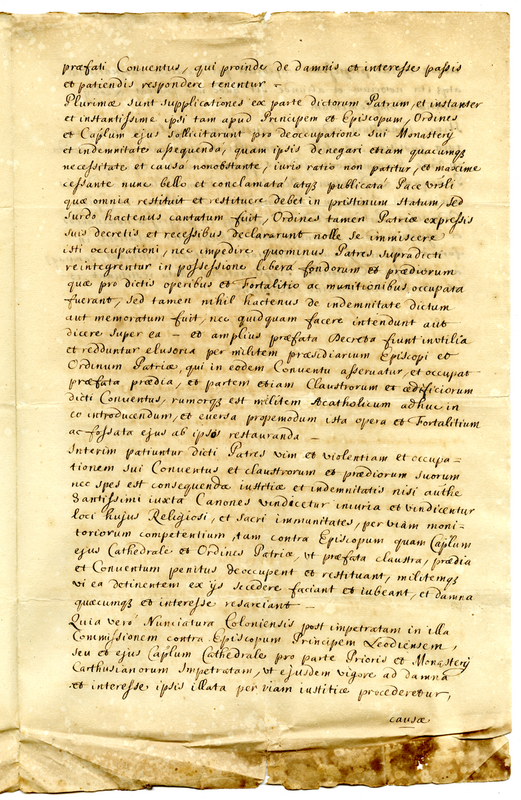 præfati Conventus, qui proinde de damnis et interesse passis
et patiendis respondere tenentur -
Plurimæ sunt supplicationes ex parte dictorum Patrum, et instanter
et instantissime ipsi tam apud Principem et Episcopum, Ordines
et Caplum ejus sollicitarunt pro deoccupatione sui Monasterÿ
et indemnitate assequenda, quam ipsis denegari etiam quacumq
necessitate et causa nonobstante, iuris ratio non patitur, et maxime
cessante nunc bello et conclamatâ atq publicatâ Pace
quæ omnia restituit et restituere debet in pristinum statum, sed
surdo hactenus cantatum fuit, Ordines tamen Patriæ expressis
suis decretis et recessibus declararunt nolle se immiscere
isti occupationi, nec impedire quominus Patres supradicti
reintegrentur in possessione libera fundorum et prædiorum
quæ pro dictis operibus et Fortalitio ac munitionibus occupata
fuerant, sed tamen nihil hactenus de indemnitate dictum
aut memoratum fuit, nec quidquam facere intendunt aut
dicere super ea - et amplius præfata Decreta fiunt inutilia
et redduntur elusoria per militem præsidiarium Episcopi et
Ordinum Patriæ, qui in eodem Conventu asservatur, et occupat
præfata prædia, et partem etiam Claustrorum et ædificiorum
dicti Conventus, rumorq est militem Acatholicum adhuc in
eo introducendum, et eversa propemodum ista opera et Fortalitium
ac fossata ejus ab ipso restauranda -
Interim patiuntur dicti Patres vim et violentiam et occupa=
tionem sui Conventus et claustrorum et prædiorum suorum
nec spes est consequendæ iustitiæ et indemnitatis nisi authe
Santissimi iuxta Canones vindicetur iniuria et vindicentur
loci hujus Religiosi, et sacri immunitates, per viam moni=
toriorum competentium, tam contra Episcopum quam Caplum
ejus Cathedrale et Ordines Patriæ, ut præfata claustra, prædia
et Conventum penitus deoccupent et restituant, militemq
vi ea detinentem ex ijs secedere faciant et iubeant, et damna
quæcumq et interesse resarciant -
Quia vero Nunciatura Coloniensis post impetratam in illa
Commissionem contra Episcopum Principem Leodiensem,
seu et ejus Caplum Cathedrale pro parte Prioris et Monasterÿ
Carthusianorum Impetratam, ut ejusdem vigore ad damna
et interesse ipsis illata per viam iustitiæ procederetur,
causæ